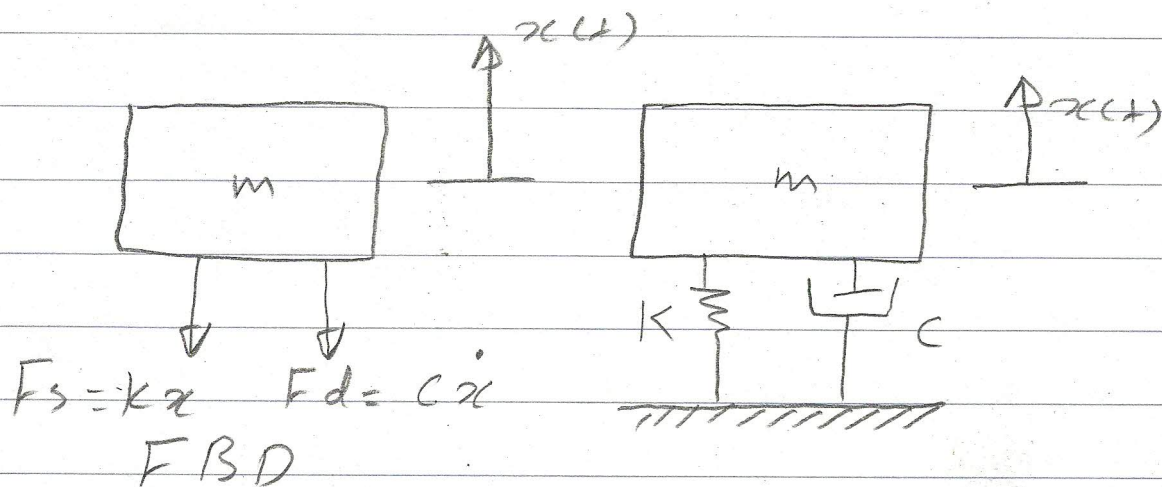 x(t)
m
Fs = kx
Fd = cẋ
FBD
m
x(t)
K
C